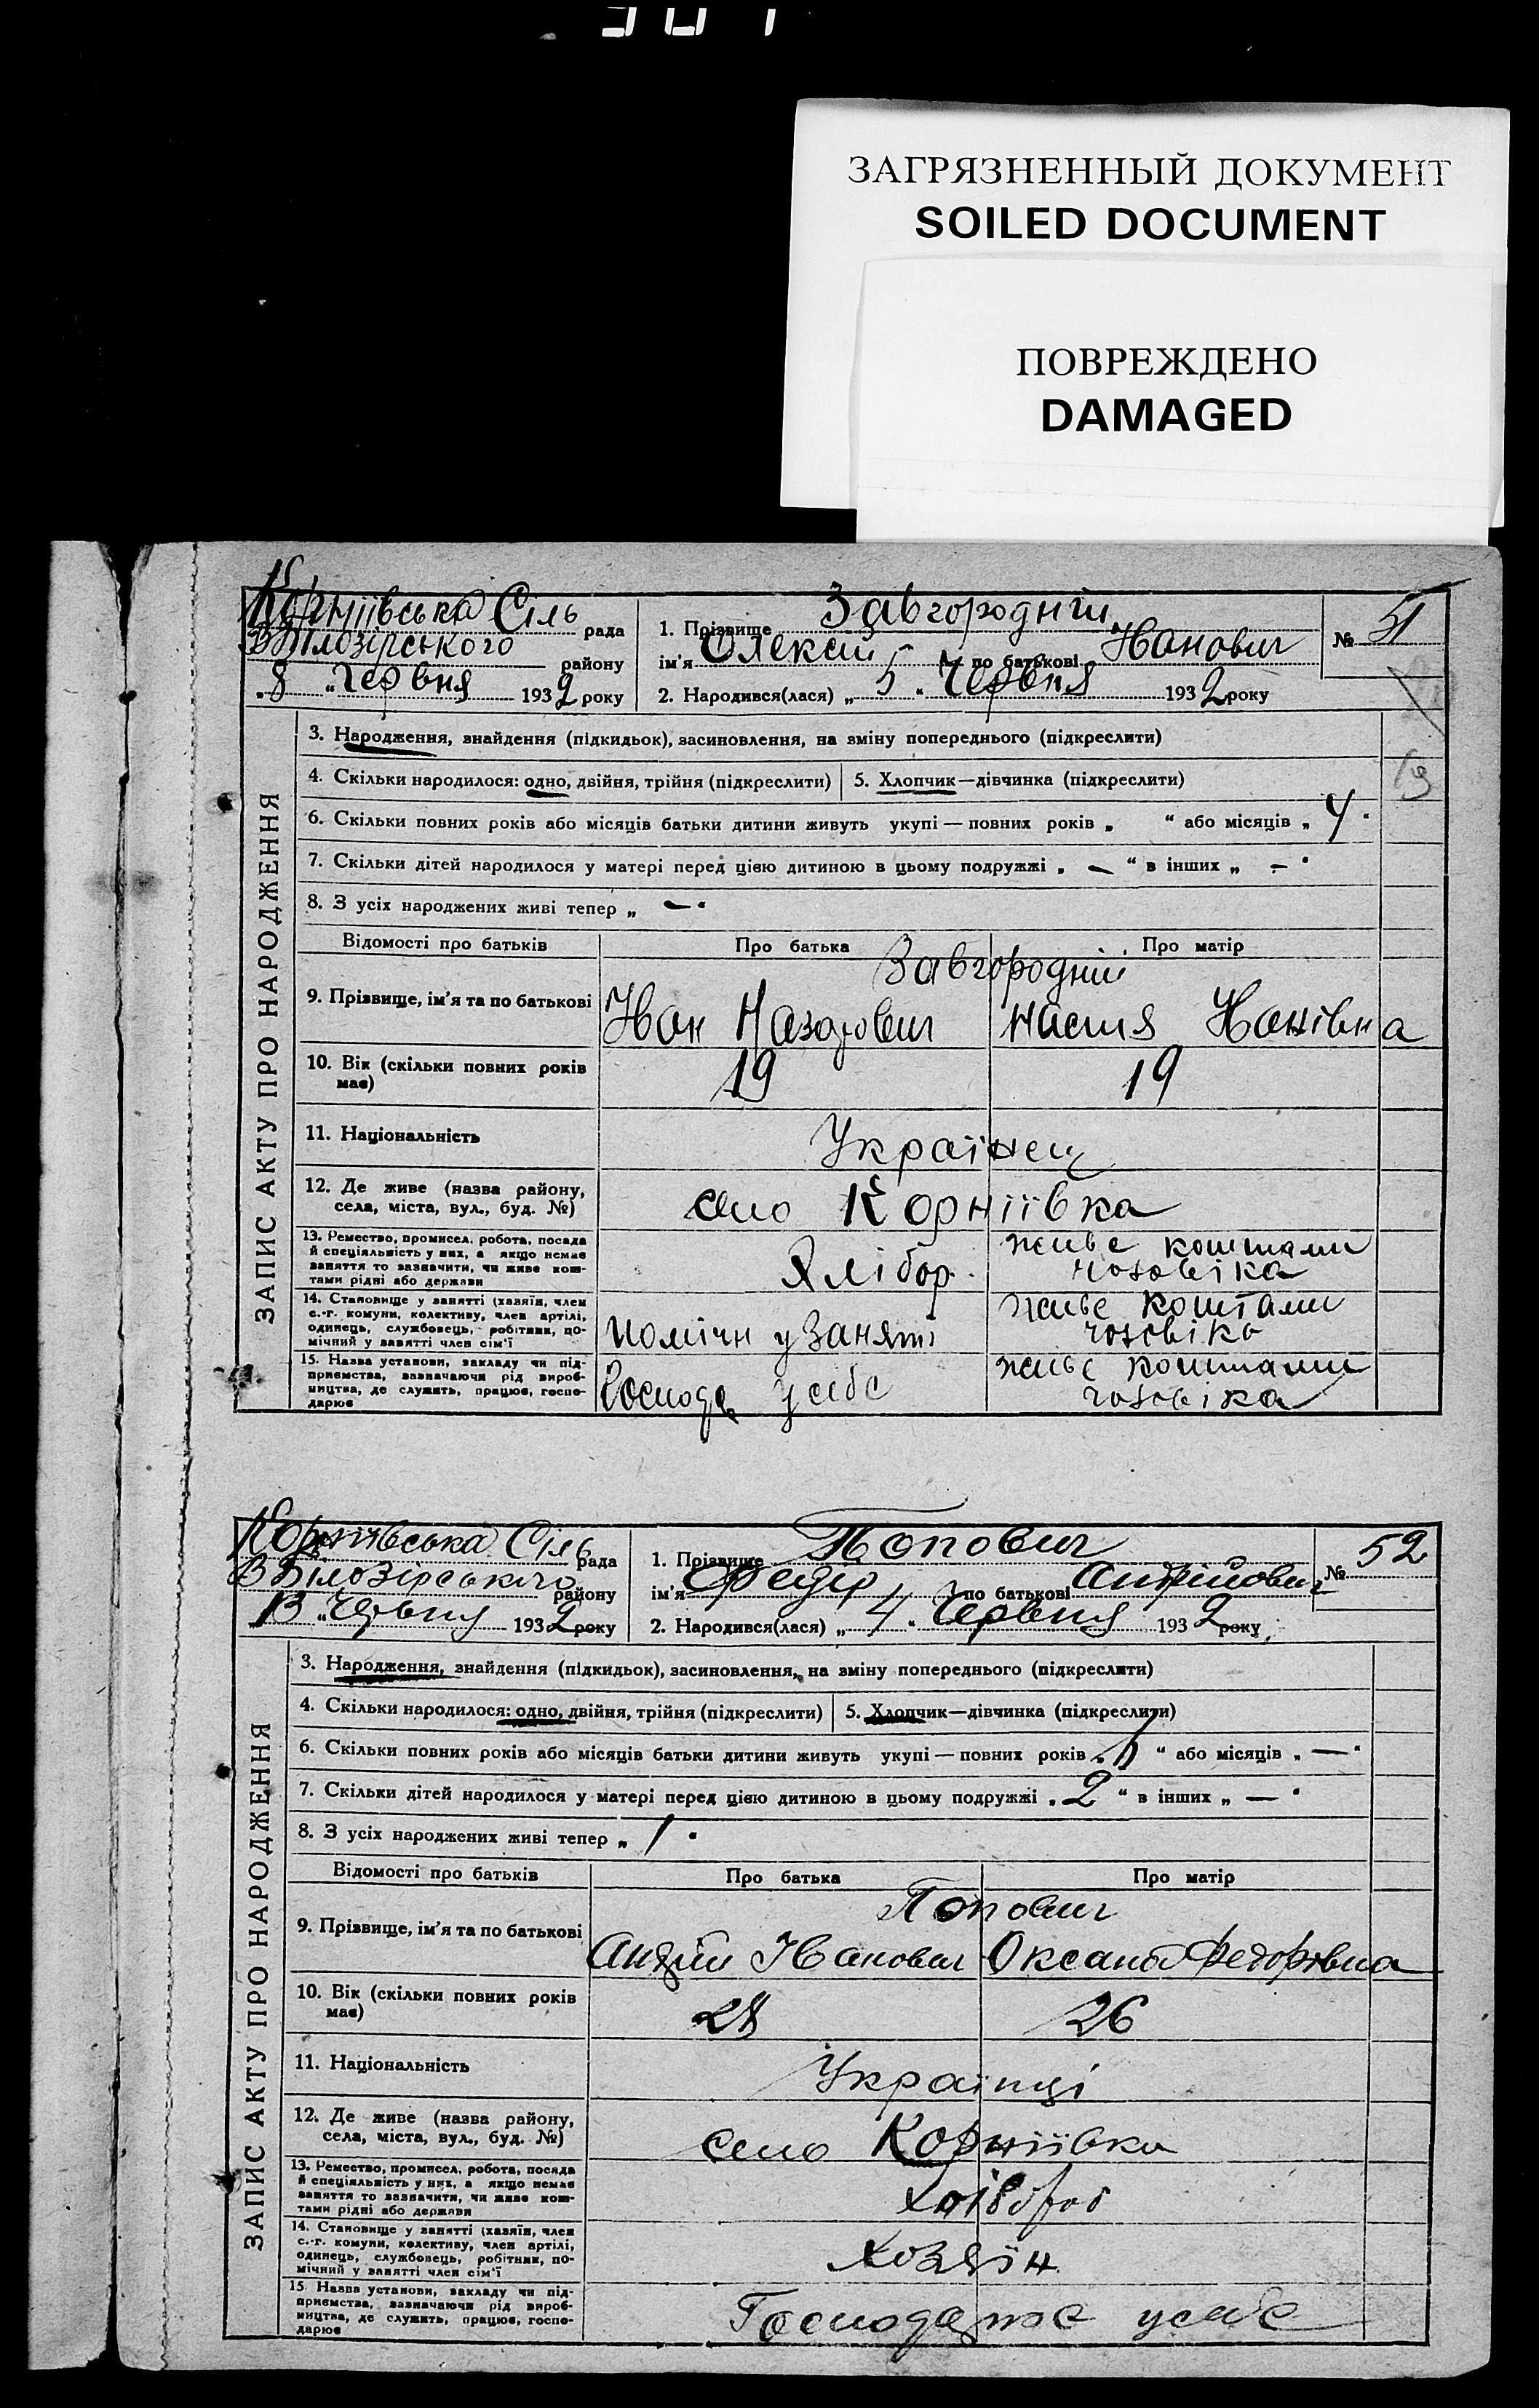 ЗАГРЯЗНЕННЫЙ ДОКУМЕНТ
SOILED DOCUMENT
ПОВРЕЖДЕНО
DAMAGED
Корніївська Сіль рада
ВБілозірського району
„8 „ Червня 1932 року
1. Прізвище Завгородній
ім'я Олексій по батькові Іванович
2. Народився(лася) „ 5 “ Червня 1932 року
№ 51
ЗАПИС АКТУ ПРО НАРОДЖЕННЯ
3. Народження, знайдення (підкидьок), засиновлення, на зміну попереднього (підкреслити)
4. Скільки народилося: одно, двійня, трійня (підкреслити) 5. Хлопчик—дівчинка (підкреслити)
6. Скільки повних років або місяців батьки дитини живуть укупі — повних років „ “ або місяців „ 4 “
7. Скільки дітей народилося у матері перед цією дитиною в цьому подружжі „ — “ в інших „ — “
8. З усіх народжених живі тепер „ — “
Відомості про батьків Про батька Про матір
Завгородній
9. Прізвище, ім'я та по батькові Іван Назарович Настя Іванівна
10. Вік (скільки повних років має) 19 19
11. Національність Українец
12. Де живе (назва району, села, міста, вул., буд. №) село Корніївка
13. Ремество, промисел, робота, посада
й спеціяльність у них, а якщо немає
заняття то зазначити, чи живе кош-
тами рідні або держави
Хлібор. живе коштами
чоловіка
14. Становище у занятті (хазяїн, член
с.-г. комуни, колективу, член артілі,
одинець, службовець, робітник, по-
мічний у занятті член сім'ї
помічн у заняті живе коштами
чоловіка
15. Назва установи, закладу чи під-
приємства, зазначаючи рід вироб-
ництва, де служить, працює, госпо-
дарює
Господ у себе живе коштами
чоловіка
Корніївська Сіль рада
ВБілозірського району
13 „ Червня 1932 року
1. Прізвище Попович
ім'я Федір по батькові Андрійович
2. Народився(лася) „ 4 “ Червня 1932 року
№ 52
ЗАПИС АКТУ ПРО НАРОДЖЕННЯ
3. Народження, знайдення (підкидьок), засиновлення, на зміну попереднього (підкреслити)
4. Скільки народилося: одно, двійня, трійня (підкреслити) 5. Хлопчик—дівчинка (підкреслити)
6. Скільки повних років або місяців батьки дитини живуть укупі — повних років „ “ або місяців „ — “
7. Скільки дітей народилося у матері перед цією дитиною в цьому подружжі „ 2 “ в інших „ — “
8. З усіх народжених живі тепер „ 1 “
Відомості про батьків Про батька Про матір
Попович
9. Прізвище, ім'я та по батькові Андрій Іванович Оксана Федорівна
10. Вік (скільки повних років має) 28 26
11. Національність Українці
12. Де живе (назва району, села, міста, вул., буд. №) село Корніївка
13. Ремество, промисел, робота, посада
й спеціяльність у них, а якщо немає
заняття то зазначити, чи живе кош-
тами рідні або держави
Хлібороб
14. Становище у занятті (хазяїн, член
с.-г. комуни, колективу, член артілі,
одинець, службовець, робітник, по-
мічний у занятті член сім'ї
Хозяїн
15 Назва установи, закладу чи під-
приємства, зазначаючи рід вироб-
ництва, де служить, працює, госпо-
дарює
Господарює у себе